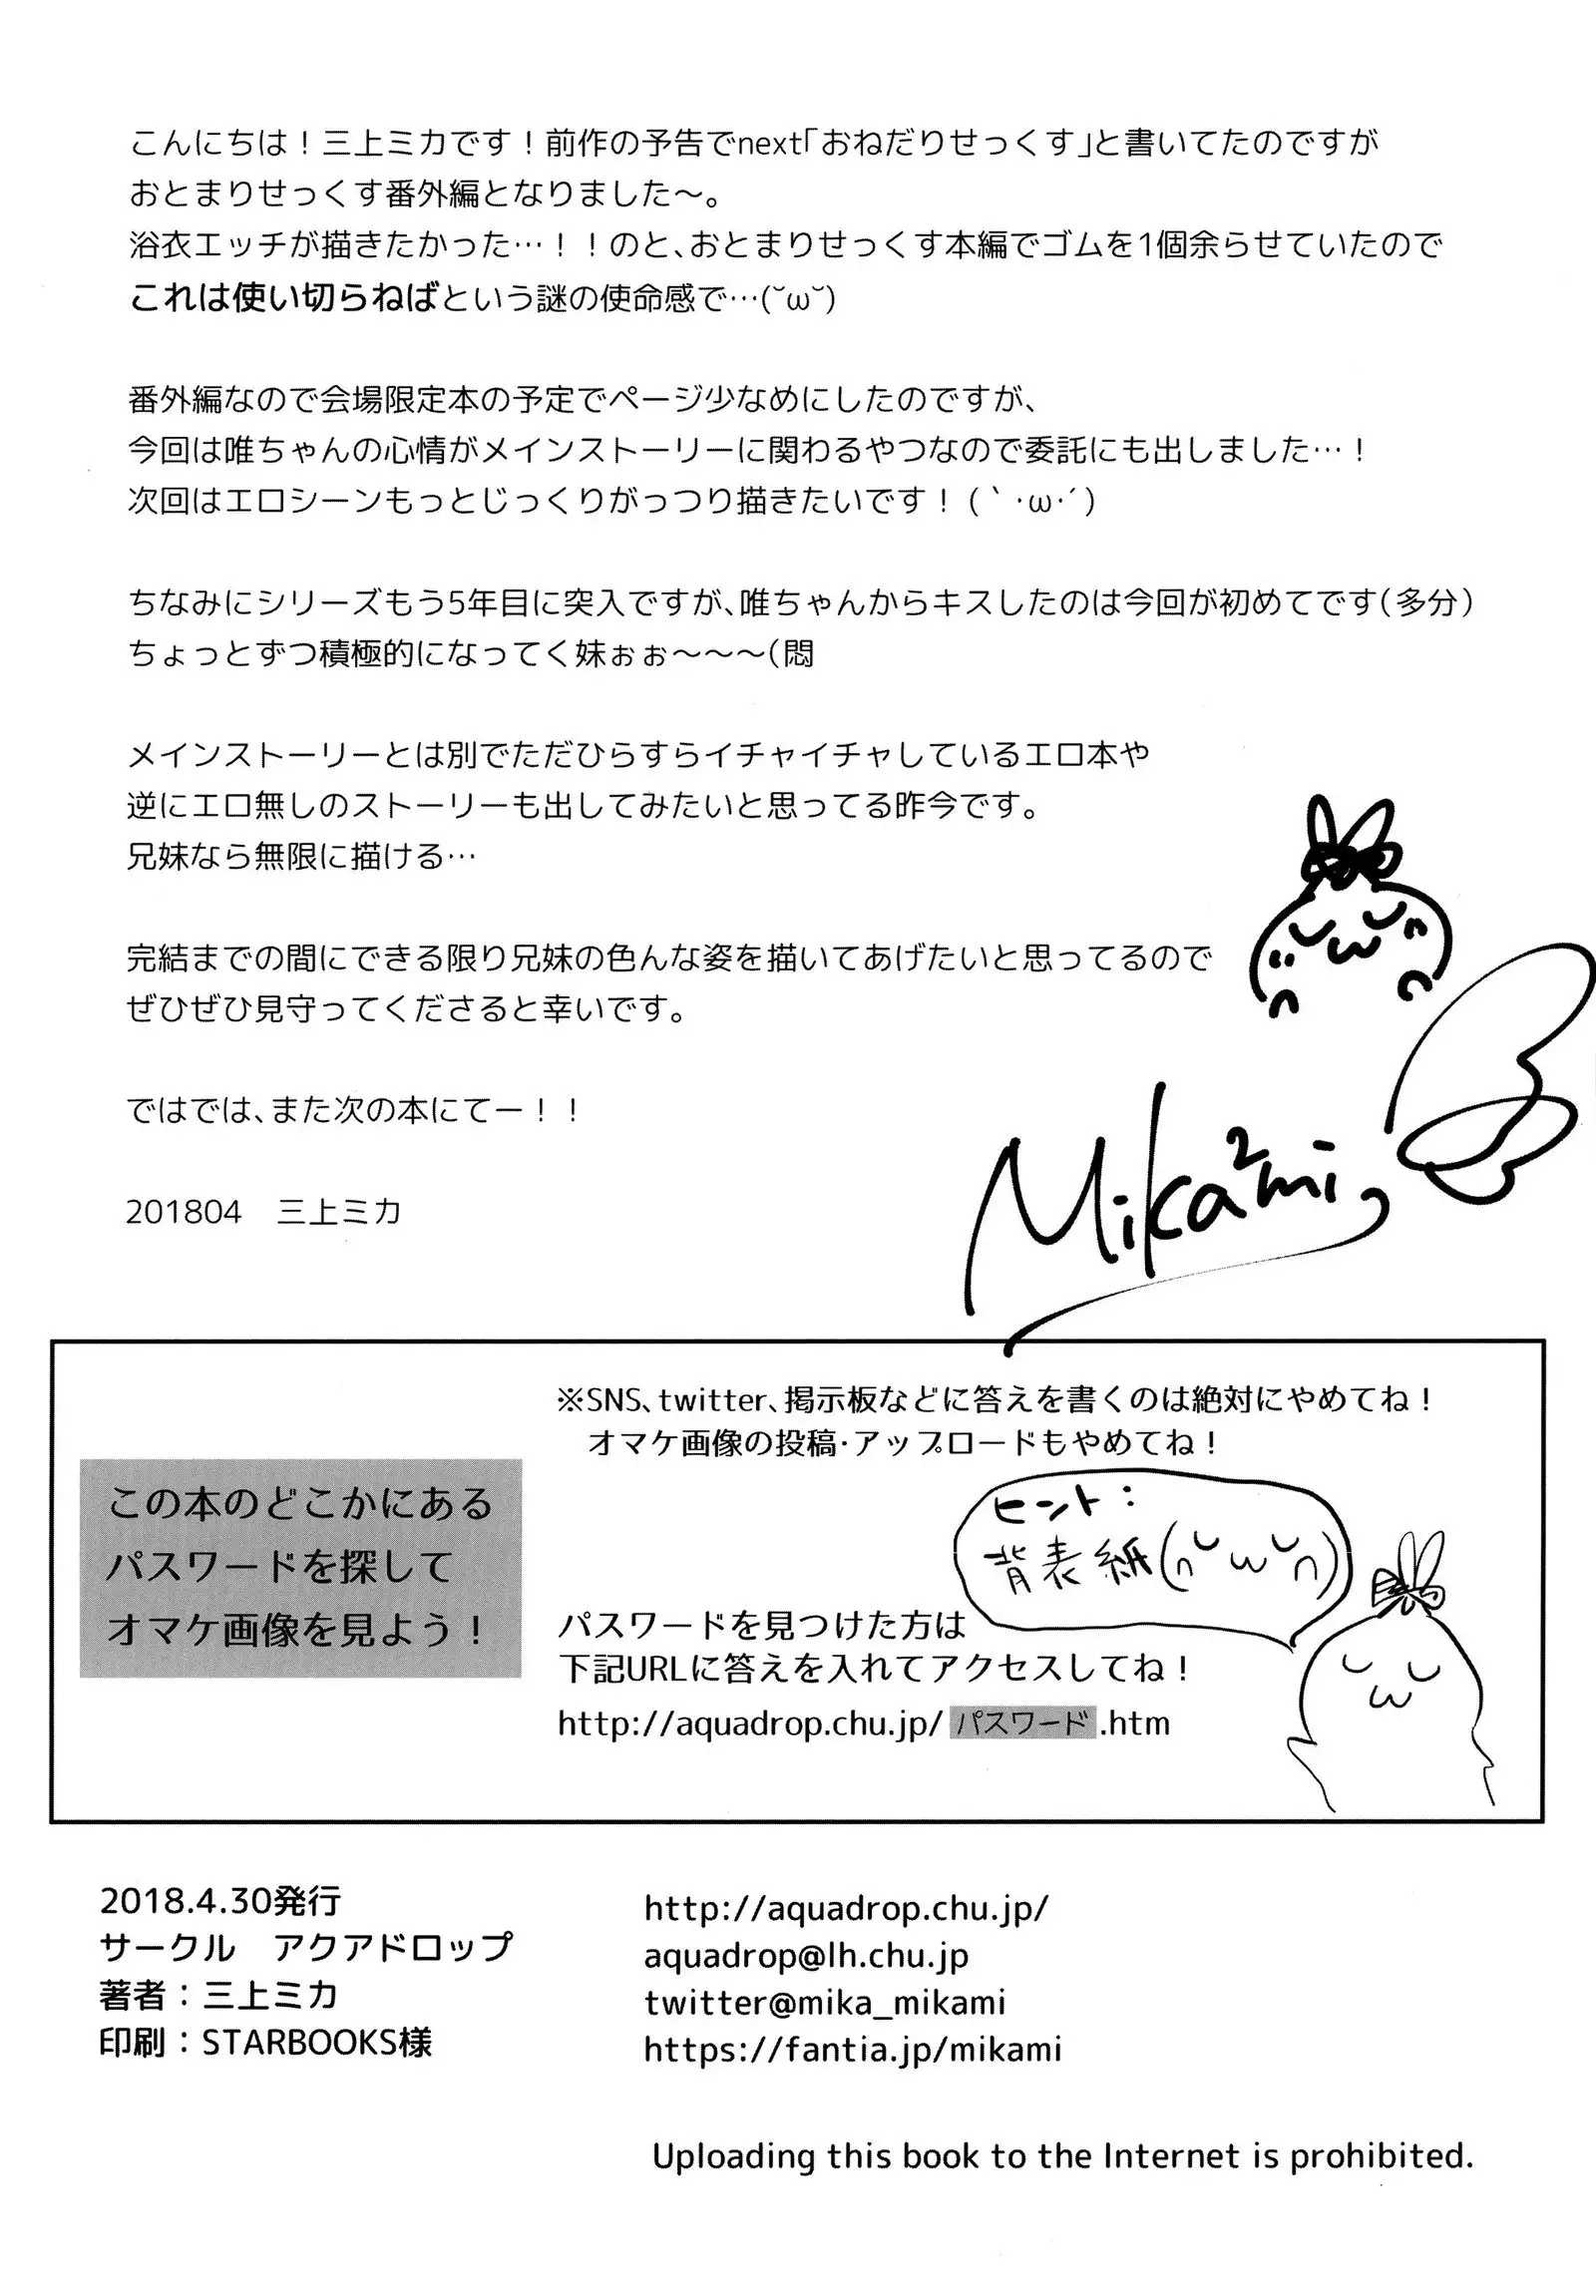 こんにちは！三上ミカです！前作の予告でnext「おねだりせっくす」と書いてたのですが
おとまりせっくす番外編となりました～。
浴衣エッチが描きたかった…！！のと、おとまりせっくす本編でゴムを1個余らせていたので
これは使い切らねばという謎の使命感で…(˘ω˘)
番外編なので会場限定本の予定でページ少なめにしたのですが、
今回は唯ちゃんの心情がメインストーリーに関わるやつなので委託にも出しました…！
次回はエロシーンもっとじっくりがっつり描きたいです！(｀・ω・´)
ちなみにシリーズもう5年目に突入ですが、唯ちゃんからキスしたのは今回が初めてです（多分）
ちょっとずつ積極的になってく妹ぉぉ～～～（悶
メインストーリーとは別でただひらすらイチャイチャしているエロ本や
逆にエロ無しのストーリーも出してみたいと思ってる昨今です。
兄妹なら無限に描ける…
完結までの間にできる限り兄妹の色んな姿を描いてあげたいと思ってるので
ぜひぜひ見守ってくださると幸いです。
ではでは、また次の本にてー！！
201804　三上ミカ
Mika²mi
※SNS、twitter、掲示板などに答えを書くのは絶対にやめてね！
オマケ画像の投稿・アップロードもやめてね！
この本のどこかにある
パスワードを探して
オマケ画像を見よう！
ヒント：
背表紙(∩˘ω˘∩)
パスワードを見つけた方は
下記URLに答えを入れてアクセスしてね！
http://aquadrop.chu.jp/パスワード.htm
2018.4.30発行
サークル　アクアドロップ
著者：三上ミカ
印刷：STARBOOKS様
http://aquadrop.chu.jp/
aquadrop@lh.chu.jp
twitter@mika_mikami
https://fantia.jp/mikami
Uploading this book to the Internet is prohibited.